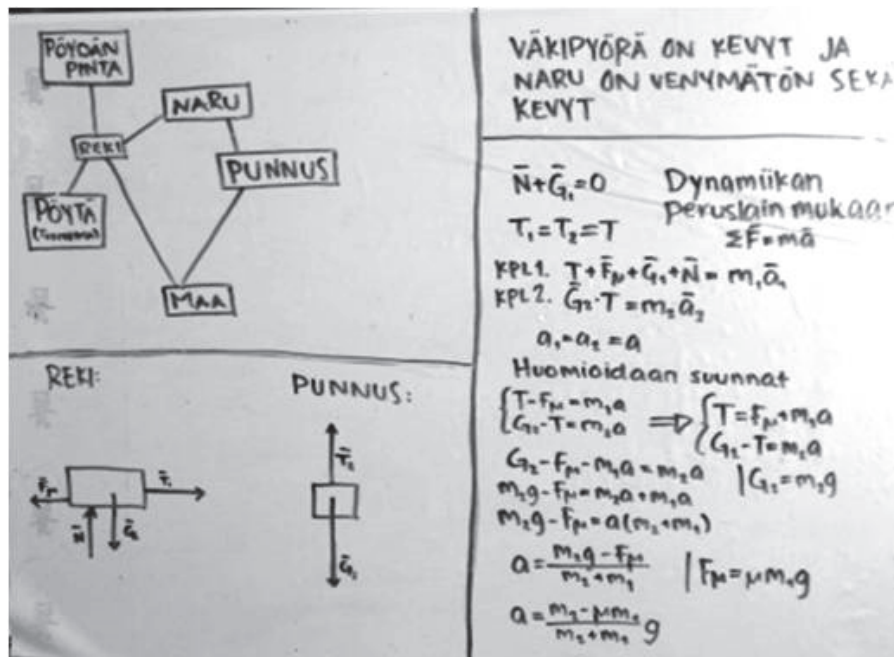 PÖYDÄN
PINTA
NARU
REKI
PUNNUS
PÖYTÄ
MAA
REKI:
PUNNUS:
F̄μ
T̄₁
N̄
Ḡ₂
T̄₂
Ḡ₁
VÄKIPYÖRÄ ON KEVYT JA
NARU ON VENYMÄTÖN SEKÄ
KEVYT
N̄+Ḡ₁=0 Dynamiikan
peruslain mukaan
T₁=T₂=T ΣF̄=mā
KPL1. T̄+F̄μ+Ḡ₁+N̄=m₁ā₁
KPL2. Ḡ₂-T=m₂ā₂
a₁=a₂=a
Huomioidaan suunnat
{T-Fμ=m₁a ⟹ {T=Fμ+m₁a
{G₂-T=m₂a {G₂-T=m₂a
G₂-Fμ-m₁a=m₂a |G₂=m₂g
m₂g-Fμ=m₂a+m₁a
m₂g-Fμ=a(m₂+m₁)
a=(m₂g-Fμ)/(m₂+m₁) |Fμ=μm₁g
a=(m₂-μm₁)/(m₂+m₁) g